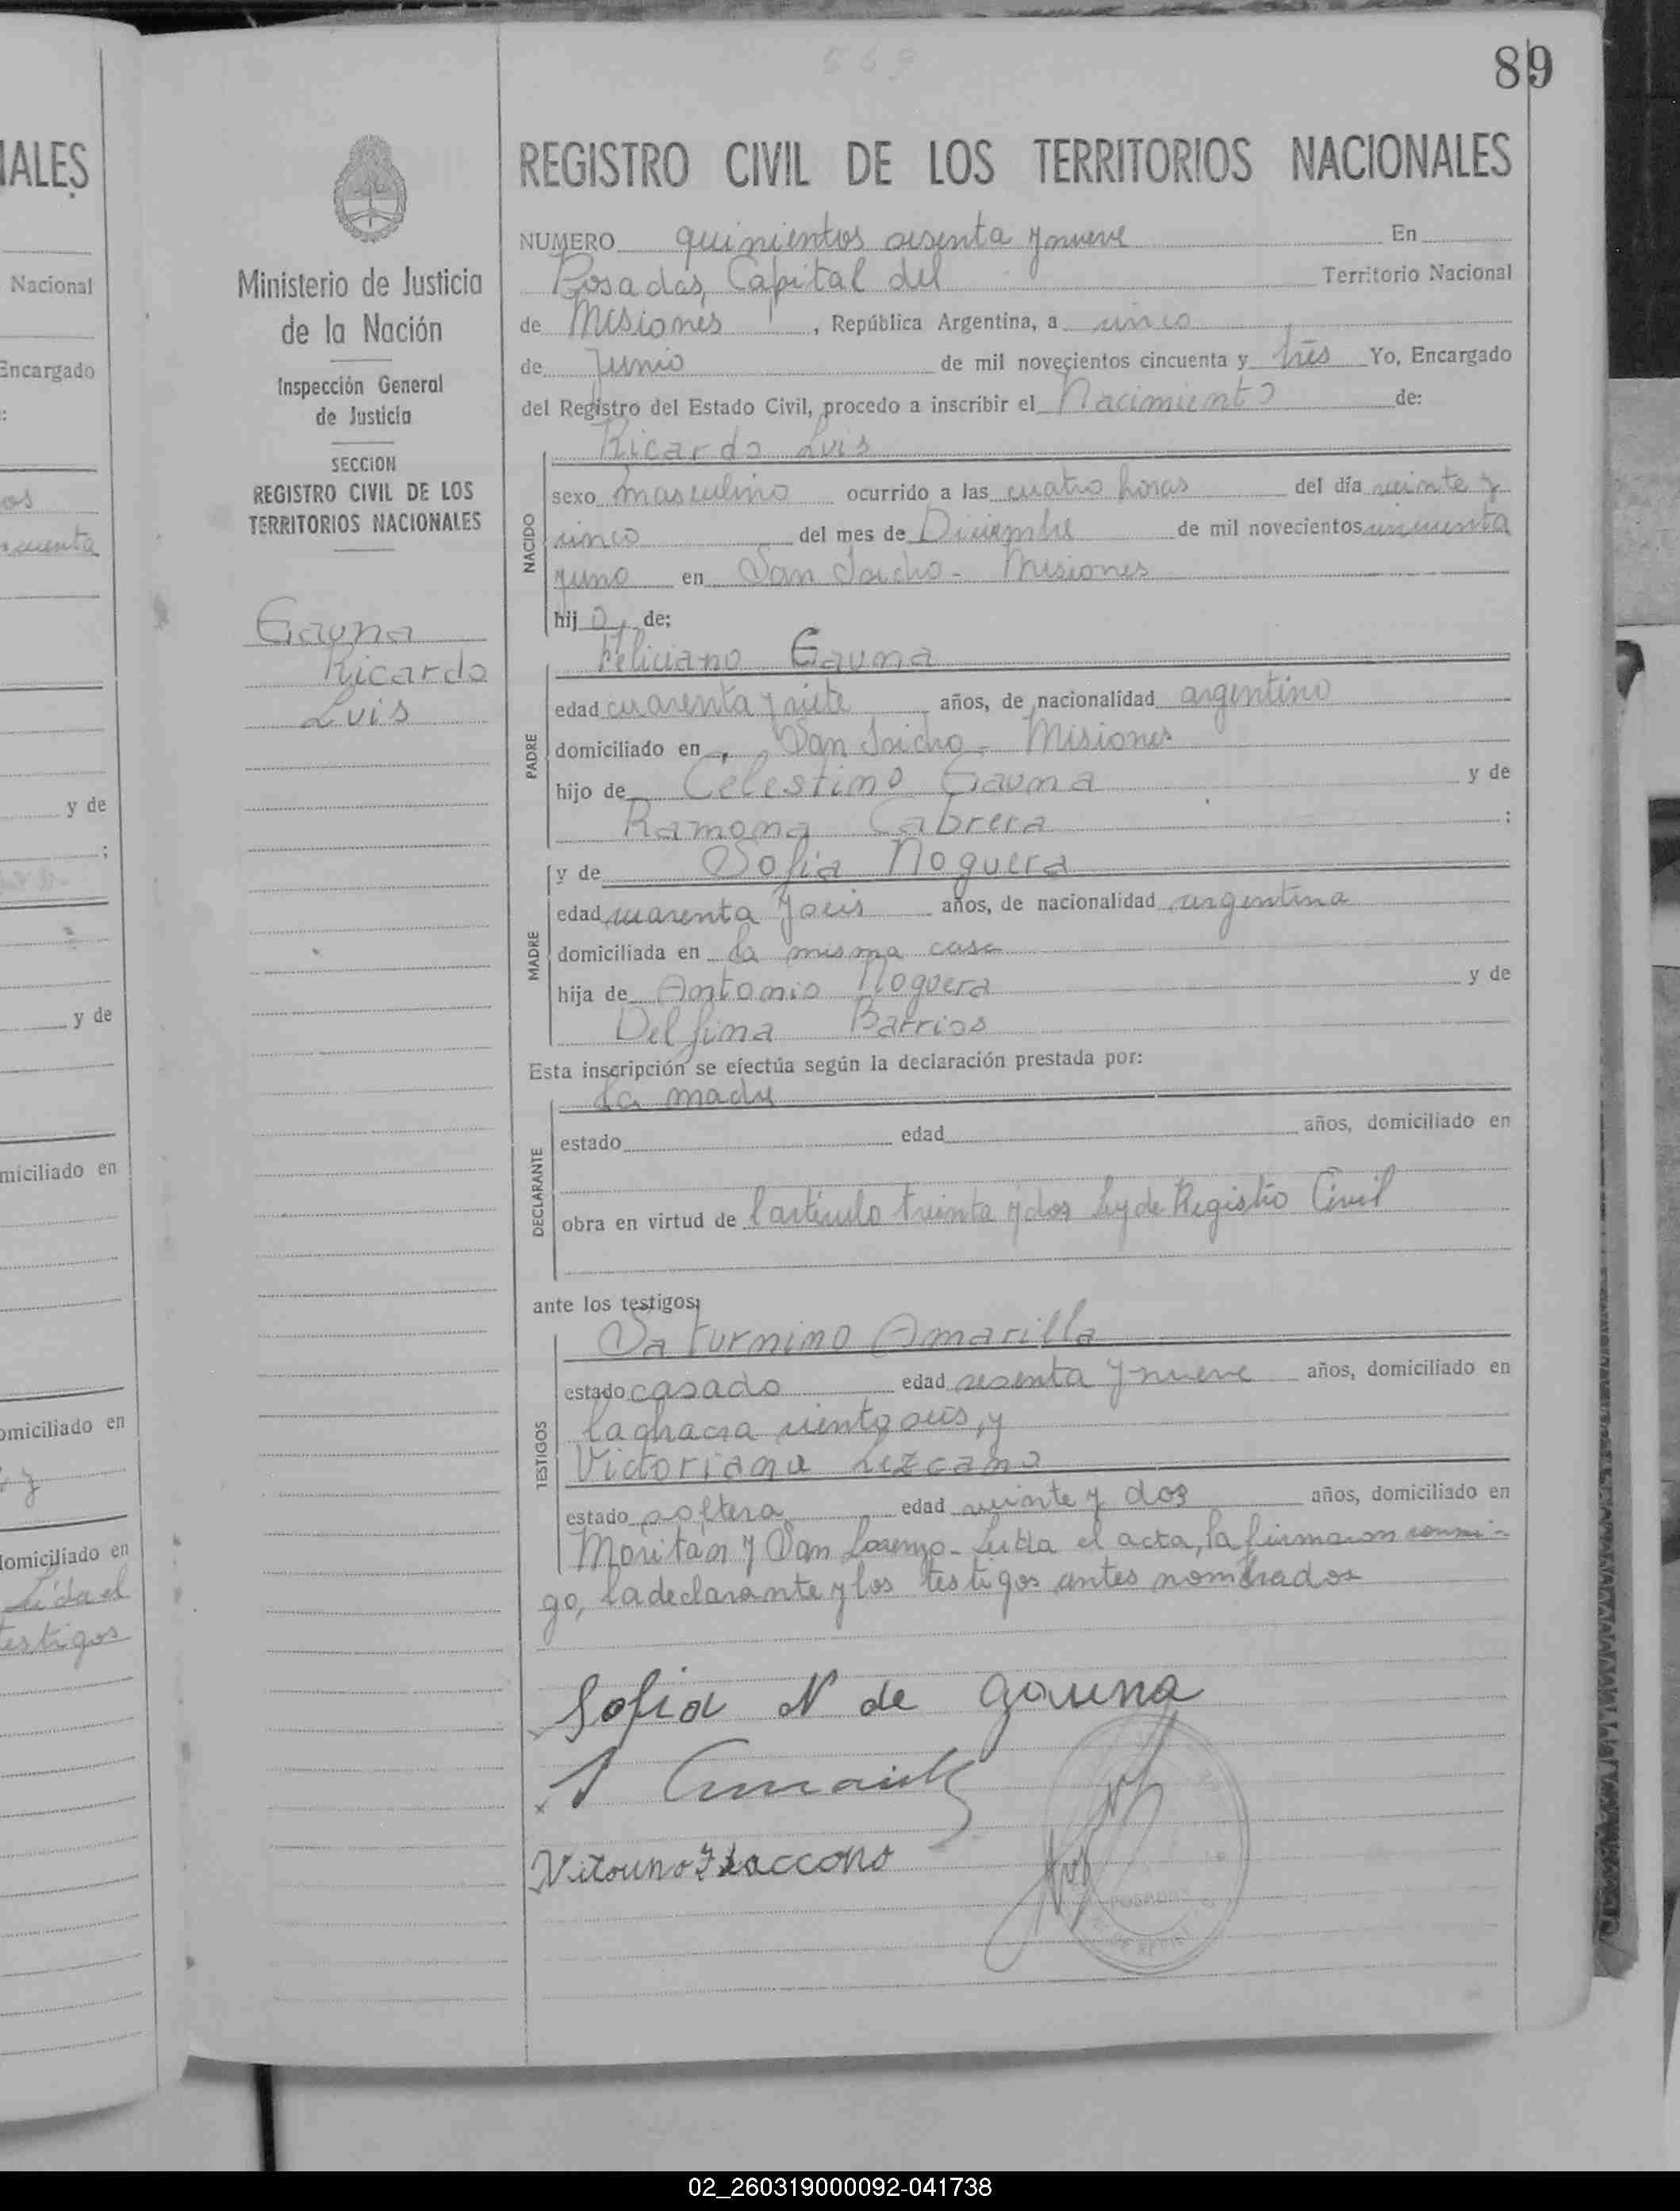 569
89
REGISTRO CIVIL DE LOS TERRITORIOS NACIONALES
NUMERO quinientos sesenta y nueve En
Posadas, Capital del Territorio Nacional
de Misiones, República Argentina, a cinco
de Junio de mil novecientos cincuenta y trés Yo, Encargado
del Registro del Estado Civil, procedo a inscribir el Nacimiento de:
NACIDO
Ricardo Luis
sexo masculino ocurrido a las cuatro horas del día veinte y
cinco del mes de Diciembre de mil novecientos cincuenta
y uno en San Isidro - Misiones
hijo, de:
PADRE
Feliciano Gauna
edad cuarenta y siete años, de nacionalidad argentino
domiciliado en San Isidro - Misiones
hijo de Celestino Gauna y de
Ramona Cabrera ;
MADRE
y de Sofia Noguera
edad cuarenta y seis años, de nacionalidad argentina
domiciliada en la misma casa
hija de Antonio Noguera y de
Delfina Barrios
Esta inscripción se efectúa según la declaración prestada por:
DECLARANTE
La madre
estado edad años, domiciliado en
obra en virtud de l artículo treinta y dos Ley de Registro Civil
ante los testigos:
TESTIGOS
Saturnino Amarilla
estado casado edad sesenta y nueve años, domiciliado en
la chacra ciento seis, y
Victoriana Lezcano
estado soltera edad veinte y dos años, domiciliado en
Moritan y San Lorenzo - Leida el acta, la firmaron conmi-
go, la declarante y los testigos antes nombrados
Sofia N de Gauna
S Amarilla
POSADAS
Ministerio de Justicia
de la Nación
Inspección General
de Justicia
SECCION
REGISTRO CIVIL DE LOS
TERRITORIOS NACIONALES
Gauna
Ricardo
Luis
NALES
Nacional
Encargado
:
os
cuenta
y de
;
y de
miciliado en
omiciliado en
y
domiciliado en
Leida el
testigos
02_260319000092-041738